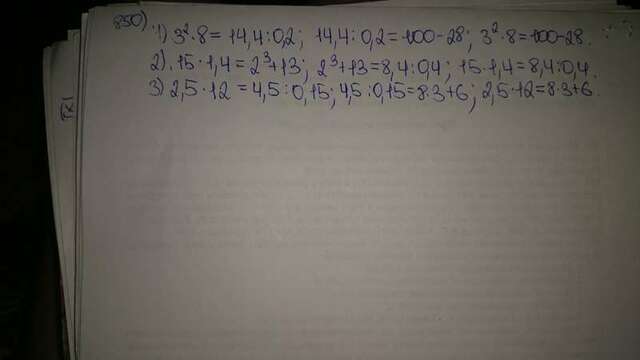 850) 1) 3²·8 = 14,4:0,2; 14,4:0,2 = 100-28; 3²·8 = 100-28.
2). 15·1,4 = 2³+13; 2³+13 = 8,4:0,4; 15·1,4 = 8,4:0,4.
3) 2,5·12 = 4,5:0,15; 4,5:0,15 = 8·3+6; 2,5·12 = 8·3+6.